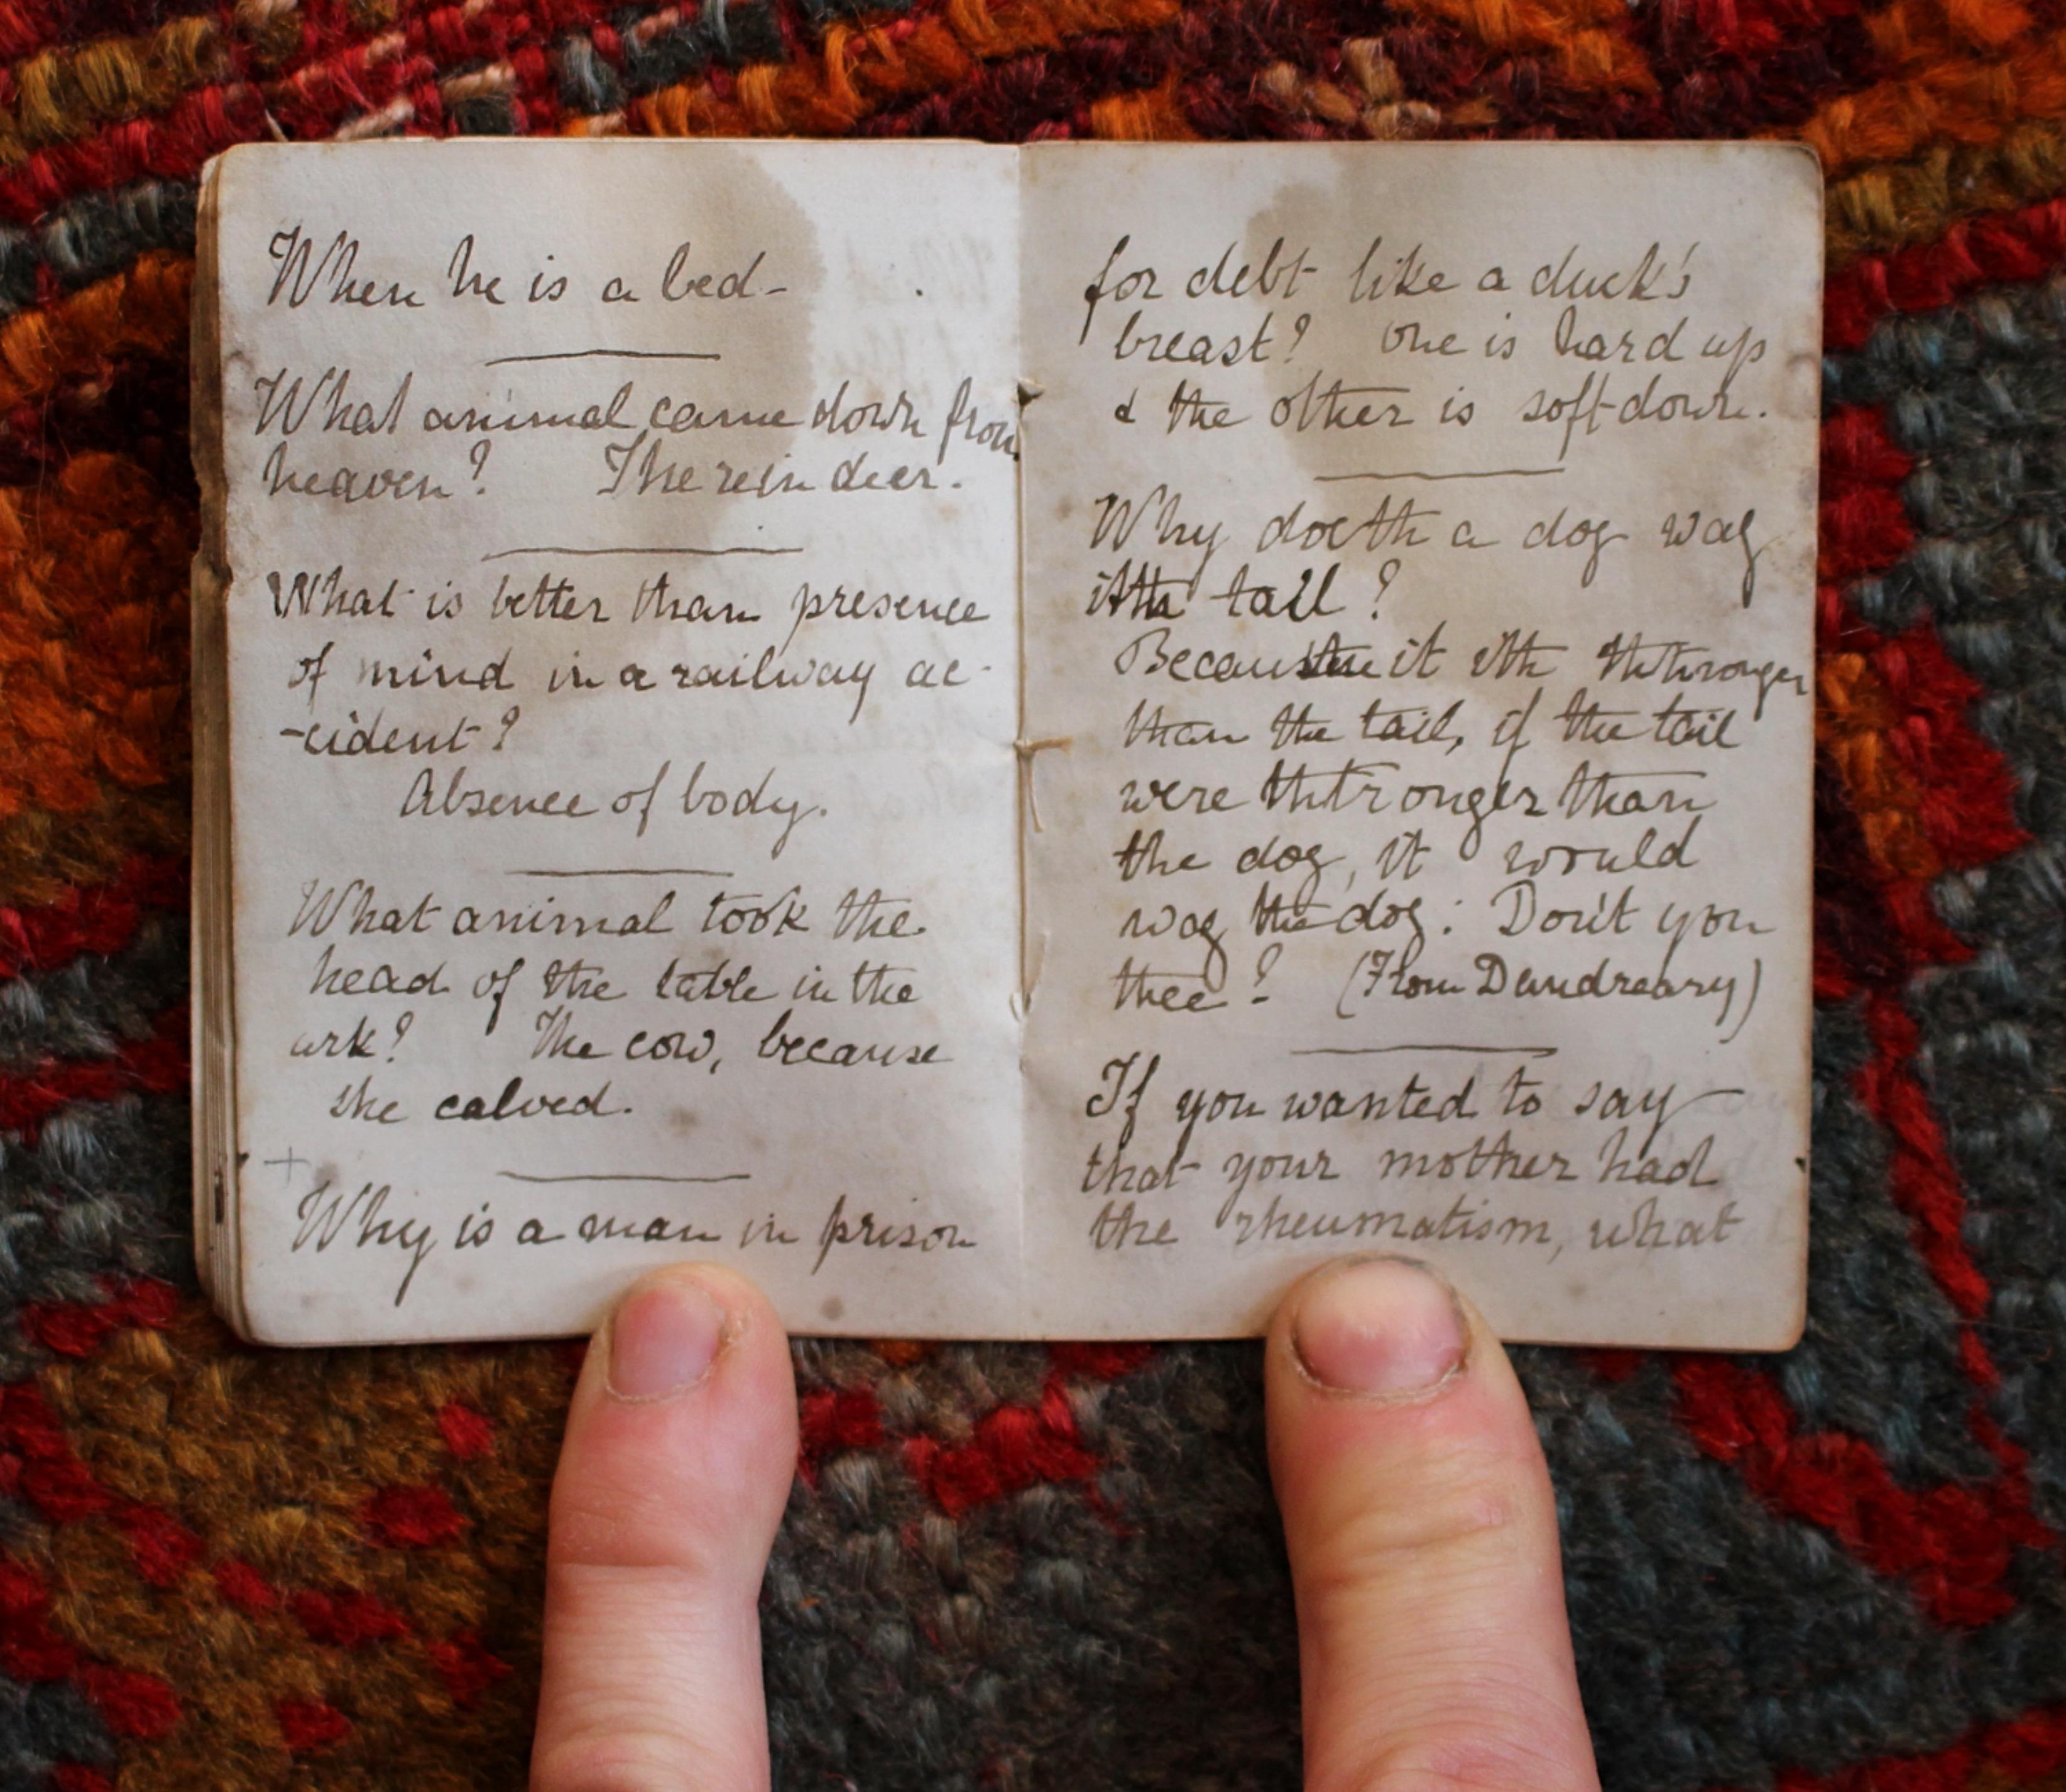 When he is a bed-
What animal came down from
heaven? The rein deer.
What is better than presence
of mind in a railway ac-
-cident?
Absence of body.
What animal took the
head of the table in the
ark? The cow, because
she calved.
Why is a man in prison
for debt like a duck's
breast? One is hard up
& the other is soft down.
Why doeth a dog wag
ith tail?
Because it ith thtronger
than the tail, if the tail
were thtronger than
the dog, it would
wag the dog: Don't you
thee? (From Dundreary)
If you wanted to say
that your mother had
the rheumatism, what